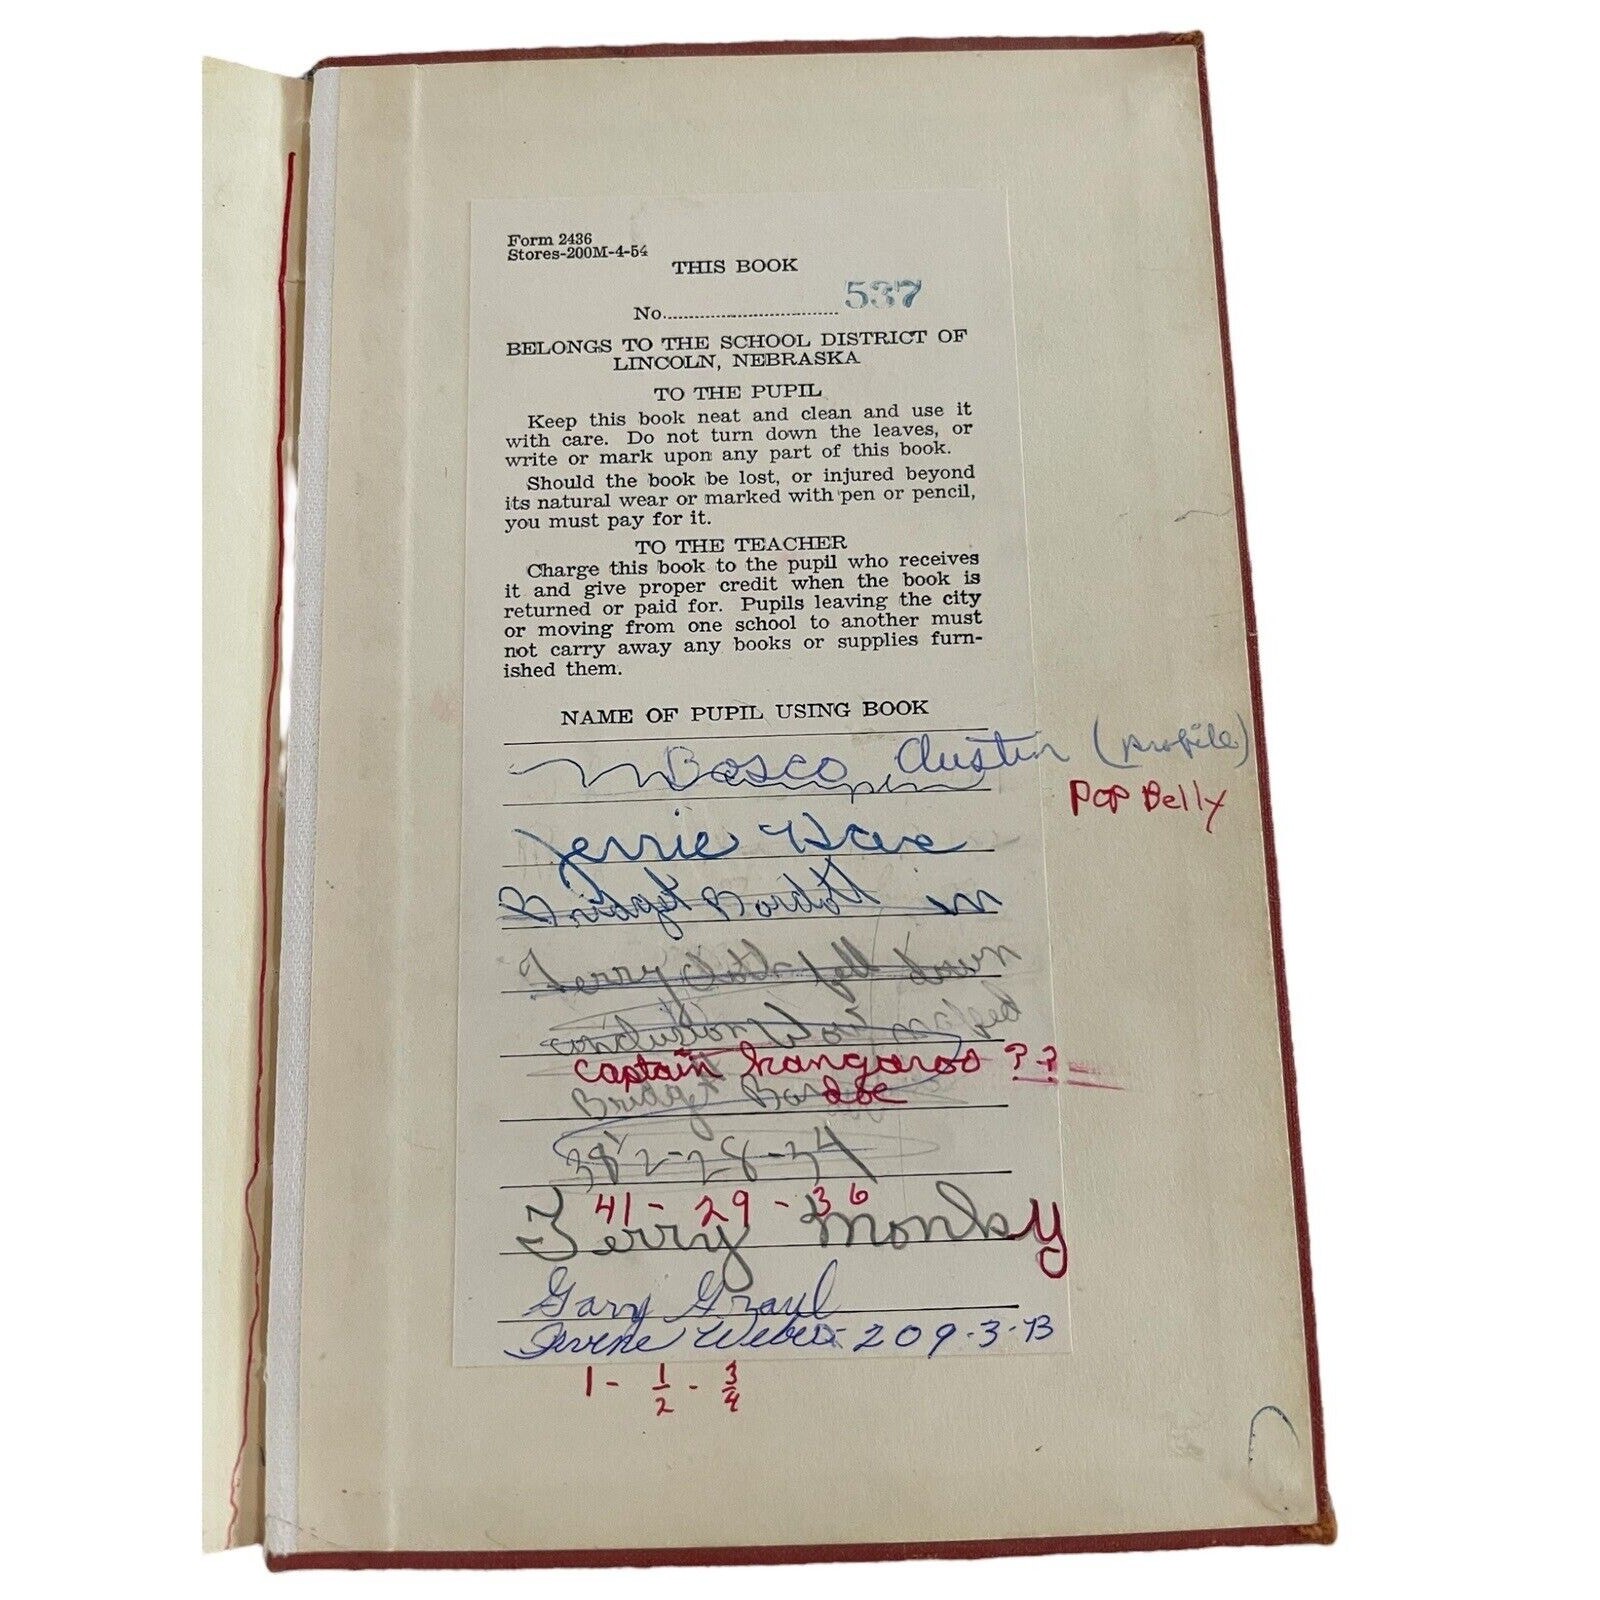 Form 2436
Stores-200M-4-54
THIS BOOK
No. 537
BELONGS TO THE SCHOOL DISTRICT OF
LINCOLN, NEBRASKA
TO THE PUPIL
Keep this book neat and clean and use it
with care. Do not turn down the leaves, or
write or mark upon any part of this book.
Should the book be lost, or injured beyond
its natural wear or marked with pen or pencil,
you must pay for it.
TO THE TEACHER
Charge this book to the pupil who receives
it and give proper credit when the book is
returned or paid for. Pupils leaving the city
or moving from one school to another must
not carry away any books or supplies furn-
ished them.
NAME OF PUPIL USING BOOK
Bosco, Austin (profile)
Pop Belly
Jerrie
Bridget Bardott in
Terry fell down
conclusion
captain kangaroo ??
Bridget
doe
38 2-28-34
41-29-36
Terry Monky
Gary Graul
Irvene Weber-209-3-B
1 - 1/2 - 3/4